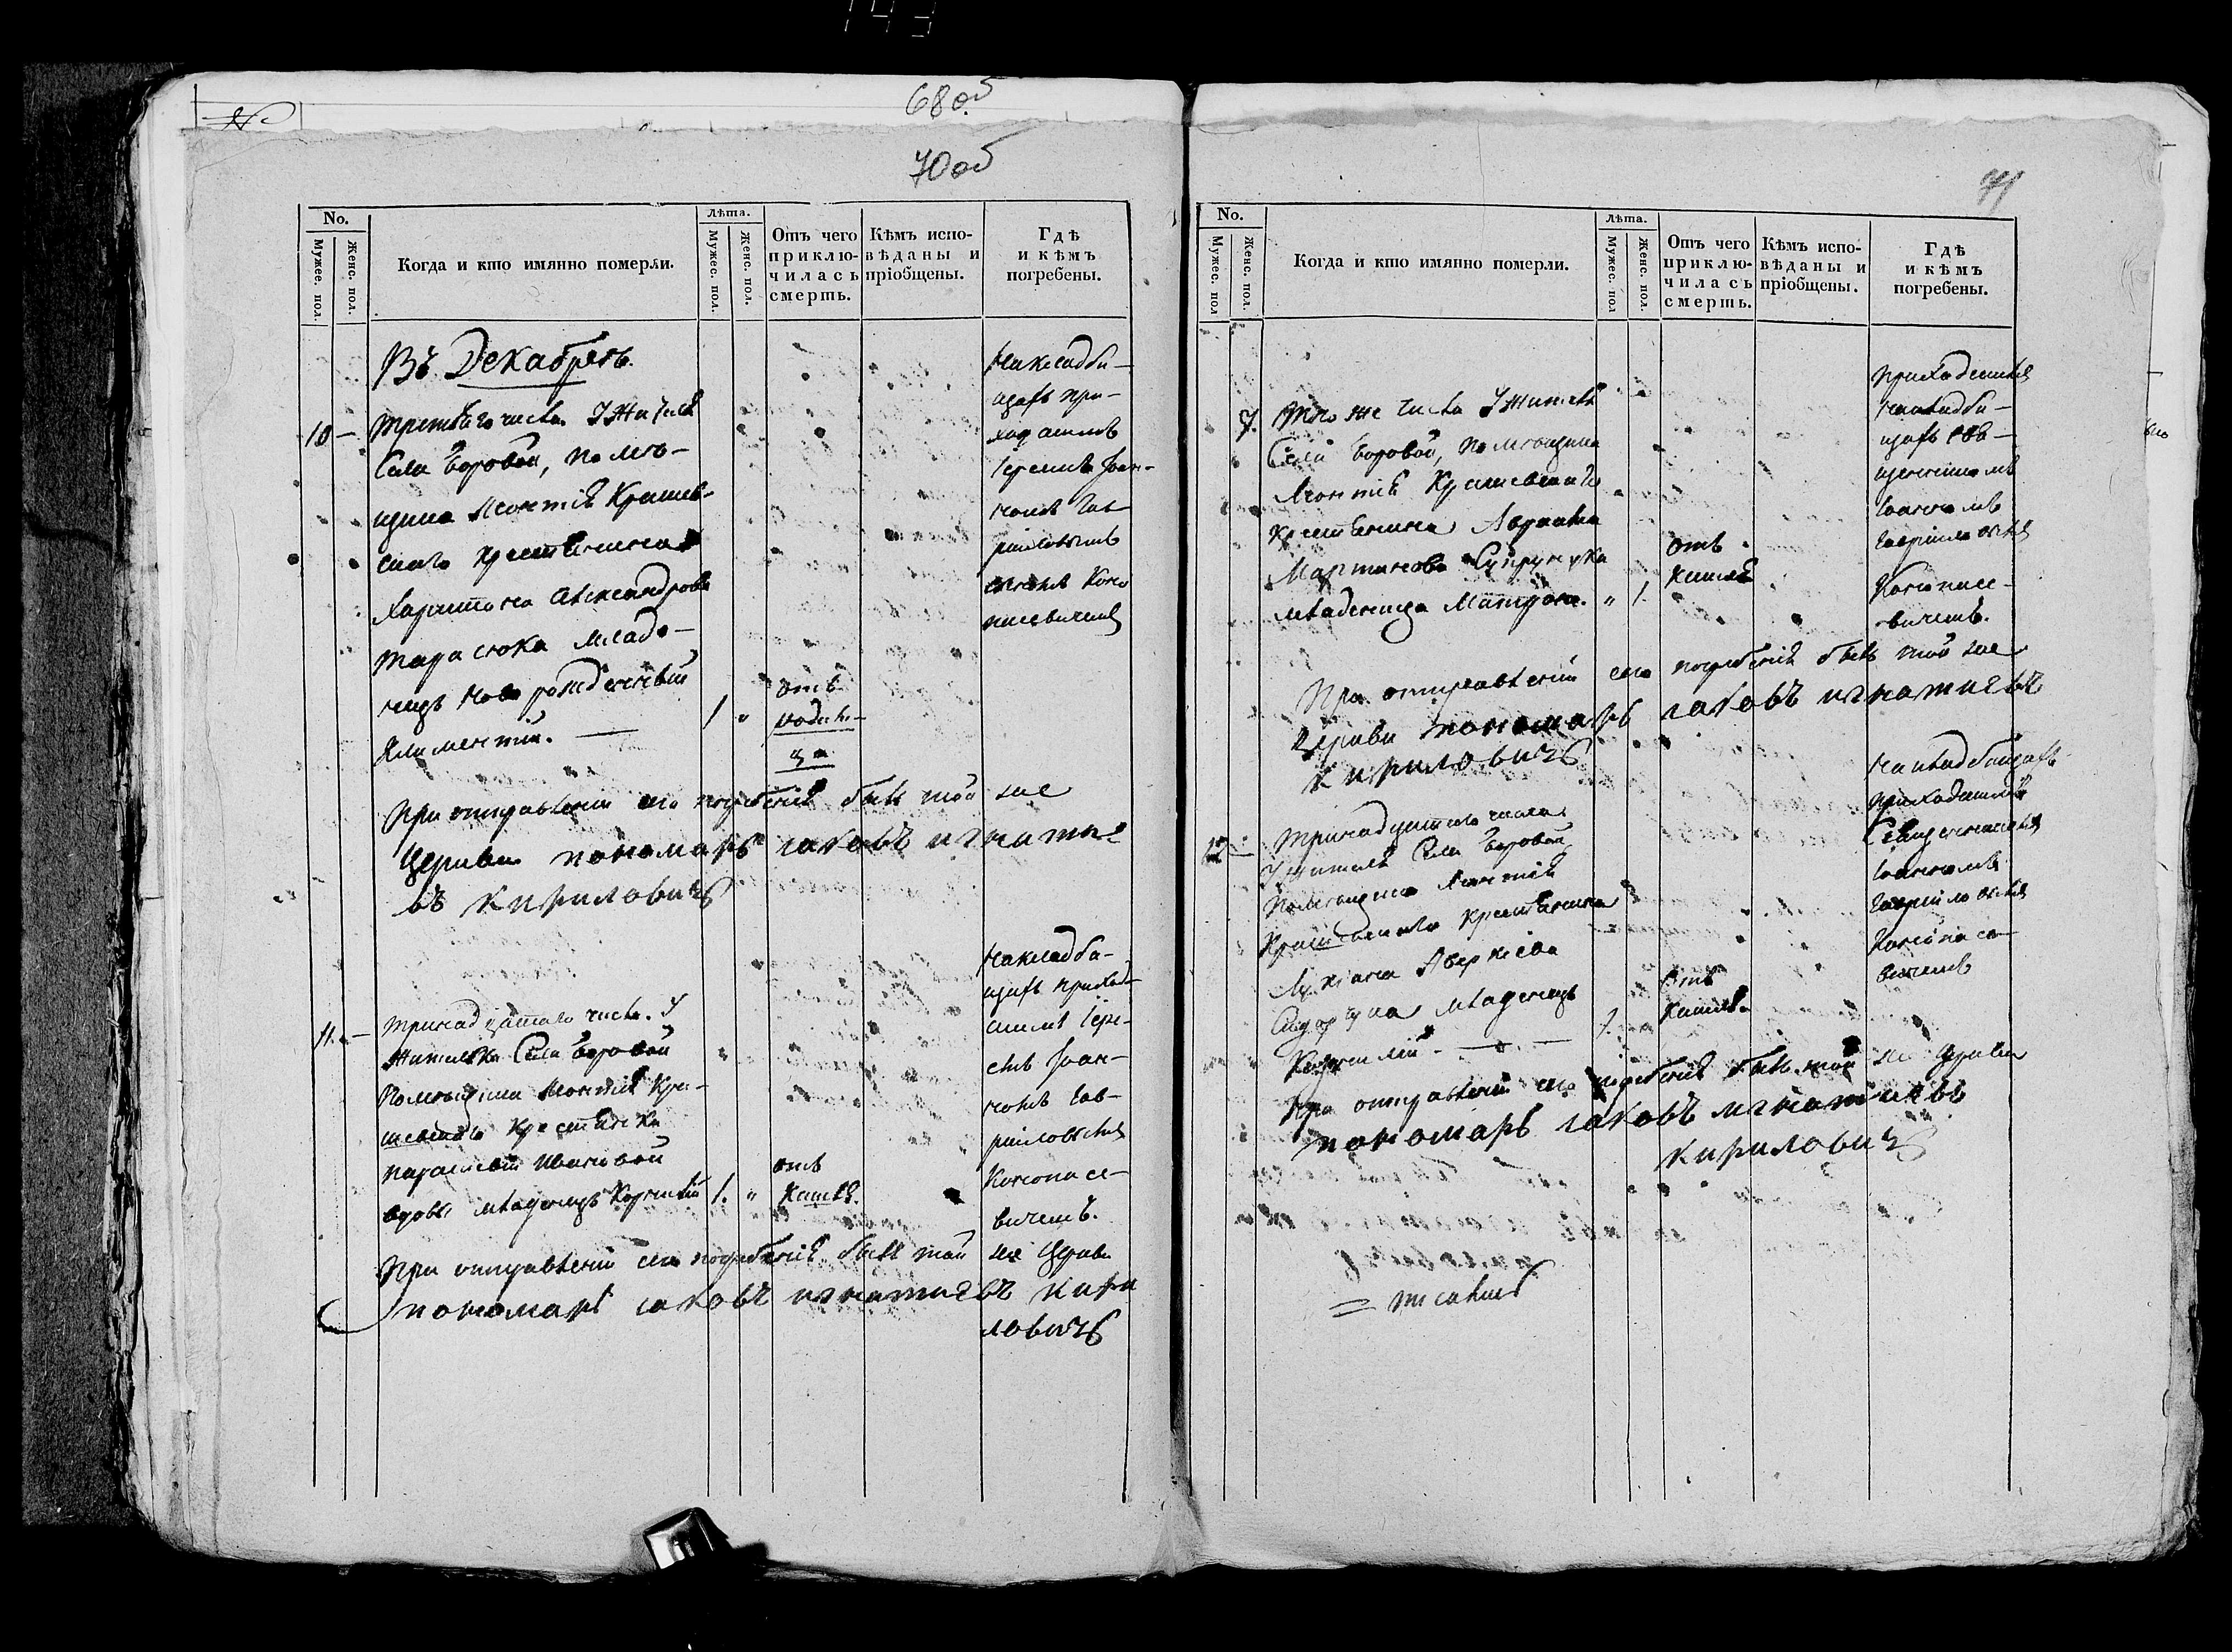 143
68 об
70 об
No.
Мужес. пол.
Женс. пол.
Когда и кто имянно померли.
Лѣта.
Мужес. пол.
Женс. пол.
Отъ чего
приклю-
чилась
смерть.
Кѣмъ испо-
вѣданы и
пріобщены.
Гдѣ
и кѣмъ
погребены.
Въ Декабрѣ.
10 - третьяго числа. У жителя
Села Боровой, помѣ-
щика Леонтія Крашев-
скаго крестьянина
Харитона Александрова
Тарасюка младе-
нецъ новорожденный
Климентій. 1 "
отъ
родим-
ца
на кладби-
щѣ при-
ходскомъ
Іереемъ Іоан-
номъ Гав-
риловымъ
Коно
пасевичемъ
При отправленіи сего погребенія былъ той же
Церкви пономарь іаковъ игнатье
въ кириловичъ
11. - тринадцатаго числа. У
жительки Села Боровой
Помѣщика Леонтія Кра-
шевскаго крестьянки
параскевы Ивановой
вдовы младенецъ Корнилій 1. "
отъ
кашля.
на кладби-
щѣ приход-
скомъ Іере-
емъ Іоан-
номъ Гав-
риловымъ
Конопасе-
вичемъ.
При отправленіи сего погребенія былъ той же Церкви
пономарь іаковъ игнатиевъ кири
ловичъ
71
No.
Мужес. пол
Женс. пол.
Когда и кто имянно померли.
Лѣта.
Мужес. пол
Женс. пол.
Отъ чего
приклю-
чилась
смерть.
Кѣмъ испо-
вѣданы и
пріобщены.
Гдѣ
и кѣмъ
погребены.
7. Того же числа У жителя
Села Боровой, помѣщика
Леонтія Крашевскаго
крестьянина Авраама
Мартинова Супрунука
младеница Матрона. " 1.
отъ
кашля
приходскомъ
на кладби-
щѣ свя-
щенникомъ
Іоанномъ
Гавриловымъ
Конопасе-
вичемъ.
При отправленіи сего погребенія былъ той же
Церкви пономарь іаковъ игнатиевъ
кириловичъ
12 - тринадцатаго числа
У жителя Села Боровой
Помѣщика Леонтія
Крашевскаго крестьянина
Лукіана Аверкіева
младенецъ
Корнилій - 1.
отъ
кашля.
на кладбищѣ
приходскомъ
Священникомъ
Іоанномъ
Гавриловымъ
Конопасе-
вичемъ
При отправленіи сего погребенія былъ той же Церкви
пономарь іаковъ игнатиевъ
кириловичъ